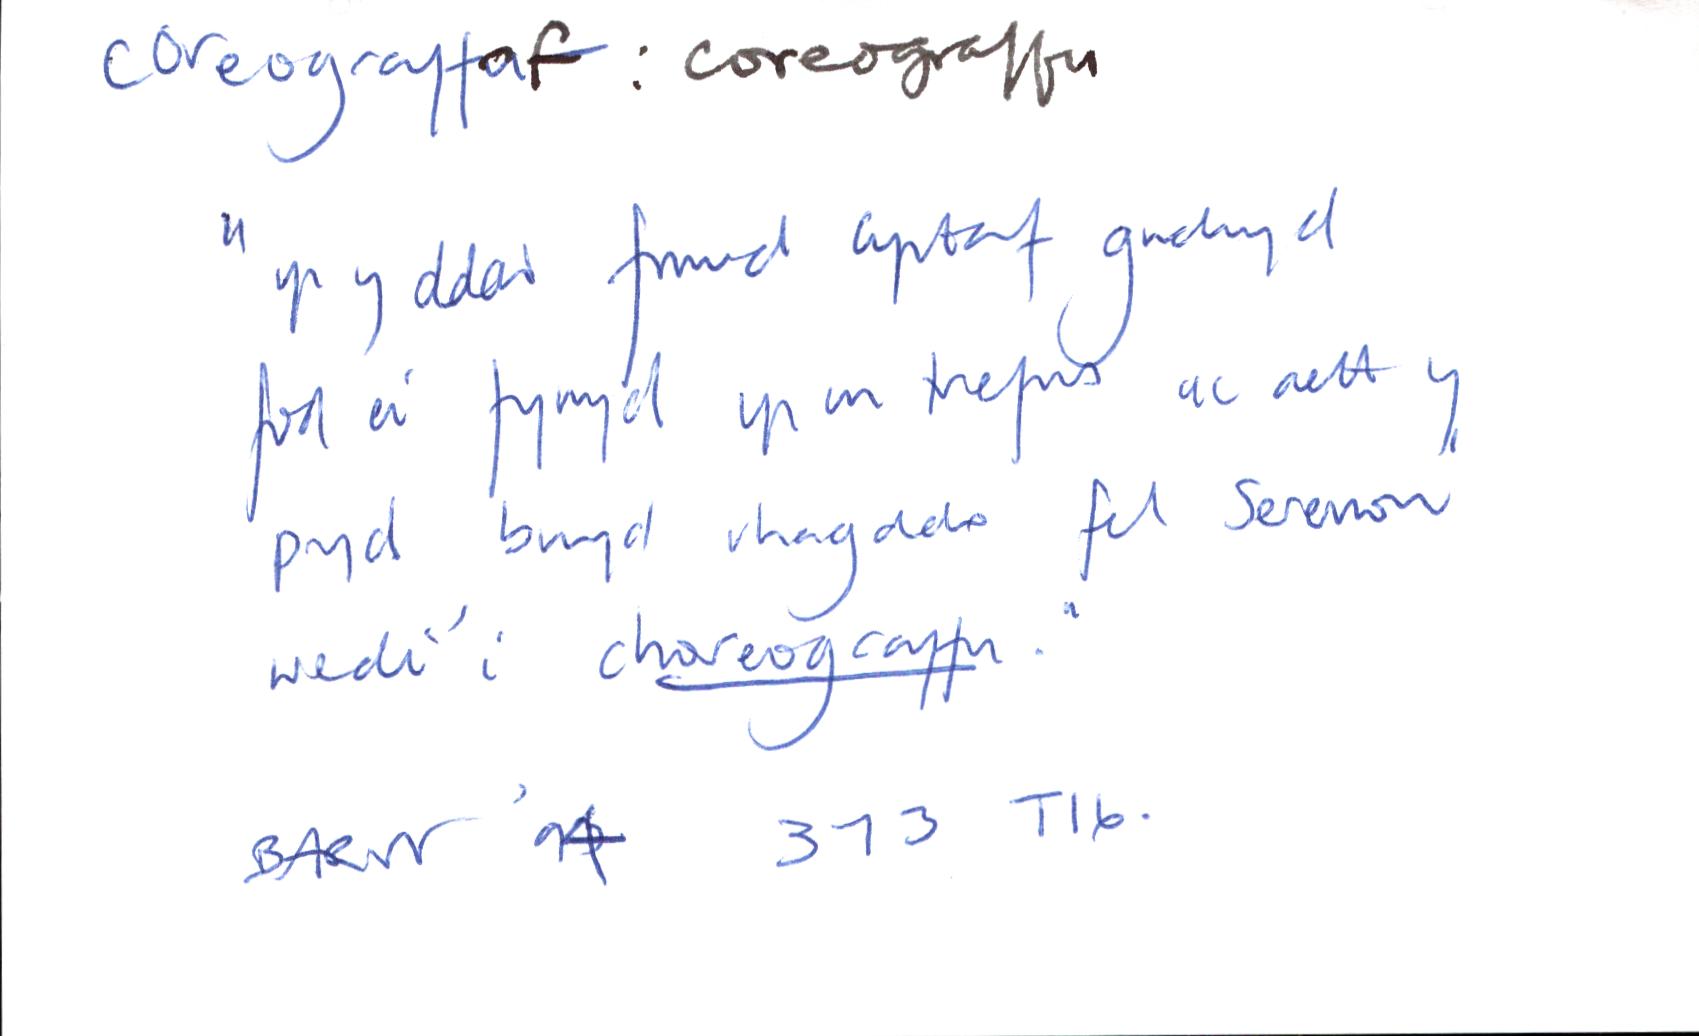 coreograffaf : coreograffu
"yn y ddau funud cyntaf gwelwyd
fod ei fywyd yn un trefnus ac aeth y
pryd bwyd rhagddo fel seremoni
wedi'i choreograffu."
BARN '94 373 T16.